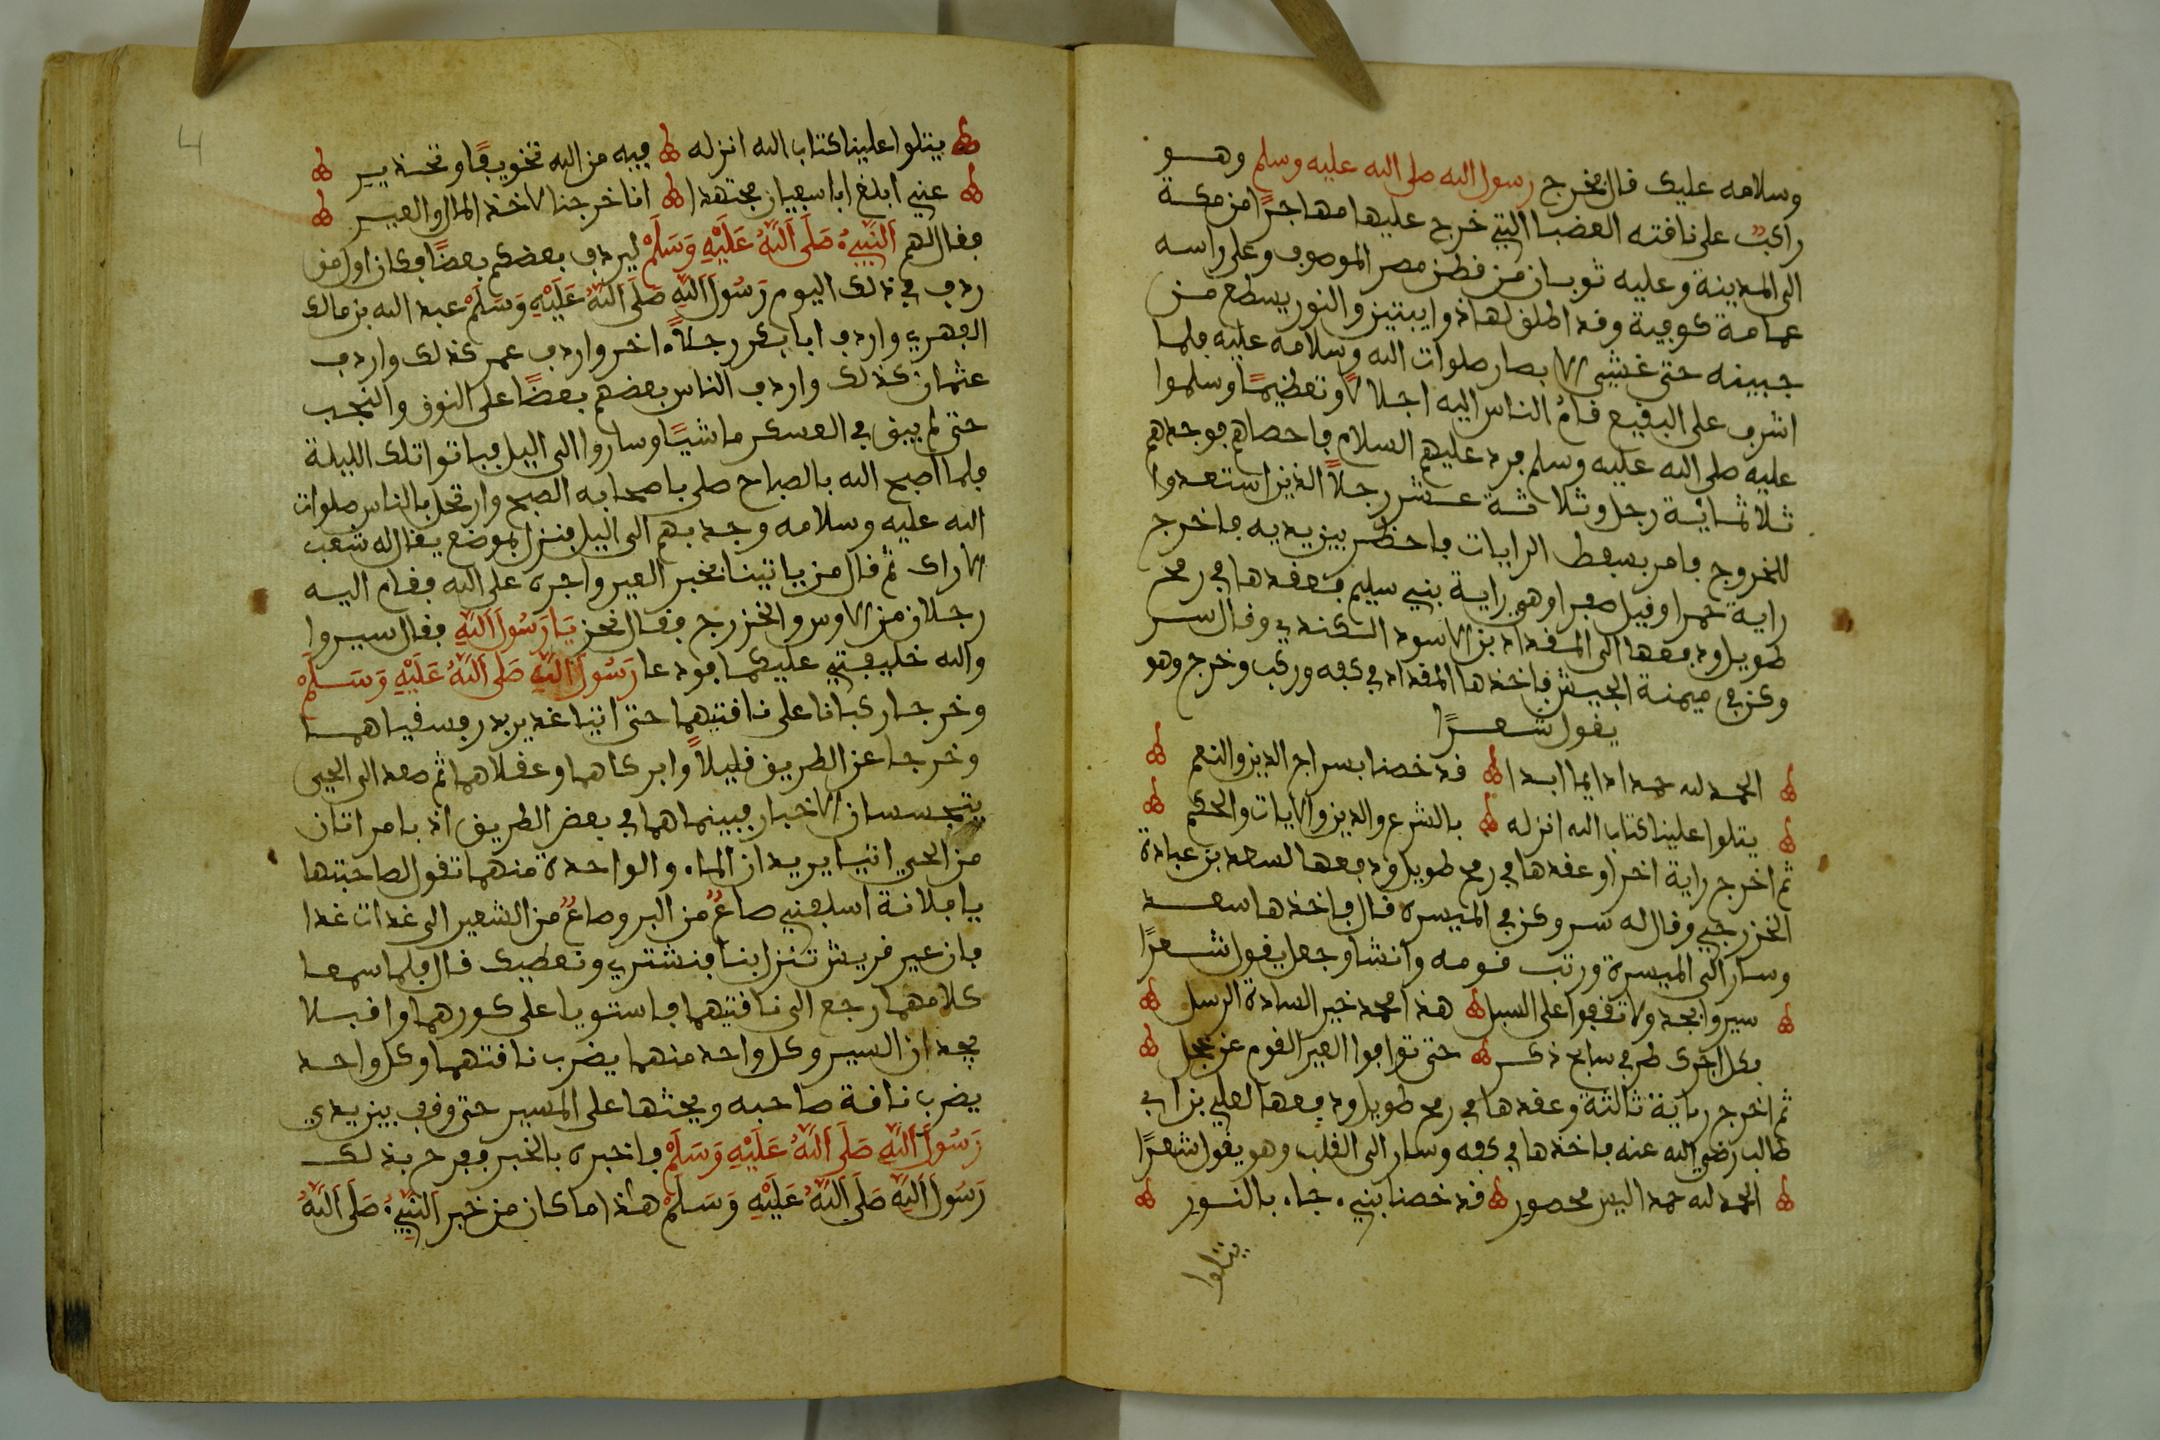 وسلامه عليك قال فخرج رسول الله صلى الله عليه وسلم وهو
راكبٌ على ناقته العضبا التي خرج عليها مهاجرًا من مكة
الى المدينة وعليه ثوبان من قطن مصر الموصوف وعلى راسه
عمامة كوفية وقد اطلق لها ذوايبتين والنور يسطع من
جبينه حتى غشى الابصار صلوات الله وسلامه عليه فلما
اشرف على البقيع قام الناس اليه اجلالًا وتعظيمًا وسلموا
عليه صلى الله عليه وسلم فرد عليهم السلام فاحصاهم فوجدهم
ثلاثمائية رجل وثلاثة عشر رجلاً الذين استعدوا
للخروج فامر بسعط الرايات فاحضر بين يديه فاخرج
راية حمرا وقيل صفرا وهي راية بني سليم فعقدها في رمح
طويل ودفعها الى المقداد بن الاسود الكندي وقال سر
وكن في ميمنة الجيش فاخذها المقداد في كفه وركب وخرج وهو
يقول شعرًا
الحمد لله حمدا دايما ابدا قد خصنا بسراج الدين والنعم
يتلوا علينا كتاب الله انزله بالشرع والدين والايات والحكم
ثم اخرج راية اخرا وعقدها في رمح طويل ودفعها لسعد بن عبادة
الخزرجي وقال له سر وكن في الميسره قال فاخذها سعد
وسار الى الميسرة ورتب قومه وانشا وجعل يقول شعرًا
سيروا بجد ولا تقفوا على السبل هذا محمد خير السادة الرسل
فكل اجرى طرفي سابح ذكر حتى توافوا العير القوم عن عجل
ثم اخرج راية ثالثة وعقدها في رمح طويل ودفعها لعلي بن ابي
طالب رضي الله عنه فاخذها في كفه وسار الى القلب وهو يقول شعرًا
الحمد لله حمد اليس محصور قد خصنا بنبيء جاء بالنور
يتلوا
4
يتلوا علينا كتاب الله انزله فيه من الله تخويفًا وتحذير
عني ابلغ ابا سفيان مجتهدا انا خرجنا لاخذ المال والعير
فقال لهم اَلنَّبِيءُ صَلَى اَللَّهُ عَلَيْهِ وَسَلَمْ ليردف بعضكم بعضًا فكان اول من
ردف في ذلك اليوم رَسُولَ اَللَّهِ صَلَى اَللَّهُ عَلَيْهِ وَسَلَمْ عبد الله بن مالك
الفهري واردف ابا بكر رجلاً اخر واردف عمر كذلك واردف
عثمان كذلك واردف الناس بعضهم بعضًا على النوق والنجب
حتى لم يبق في العسكر ماشيًا وساروا الى اليل فباتوا تلك الليلة
فلما اصبح الله بالصباح صلى باصحابه الصبح وارتحل بالناس صلوات
الله عليه وسلامه وجد بهم الى اليل فنزل بموضع يقال له شعب
الاراك ثم قال من ياتينا بخبر العير واجره على الله فقام اليه
رجلان من الاوس والخزرج فقال نحن يَا رَسُولَ اَللَّهِ فقال سيروا
والله خليفتي عليكما فودعا رَسُولَ اَللَّهِ صَلَى اَللَّهُ عَلَيْهِ وَسَلَمْ
وخرجا ركبانا على ناقتيهما حتى اتيا غدير بدر فسقياهما
وخرجا عن الطريق قليلاً وابركاهما وعقلاهما ثم صعد الى الحي
يتجسسان الاخبار فبينماهما في بعض الطريق اذ بامراتان
من الحي اتيا يريدان الماء والواحدة منهما تقول لصاحبتها
يا فلانة اسلفيني صاعٌ من البر وصاعٌ من الشعير الى غدات غدا
فان عير قريش تنزل بنا فنشتري ونعطيك قال فلما سمعا
كلامهما رجع الى ناقتيهما فاستويا على كورهما واقبلا
يجدان السير وكل واحد منهما يضرب ناقتهما وكل واحد
يضرب ناقة صاحبه ويحثها على المسير حتى وقف بين يدي
رَسُولَ اَللَّهِ صَلَى اَللَّهُ عَلَيْهِ وَسَلَمْ فاخبره بالخبر ففرح بذلك
رَسُولَ اَللَّهِ صَلَى اَللَّهُ عَلَيْهِ وَسَلَمْ هذا ما كان من خبر اَلنَّبِيءُ صَلَى اَللَّهُ